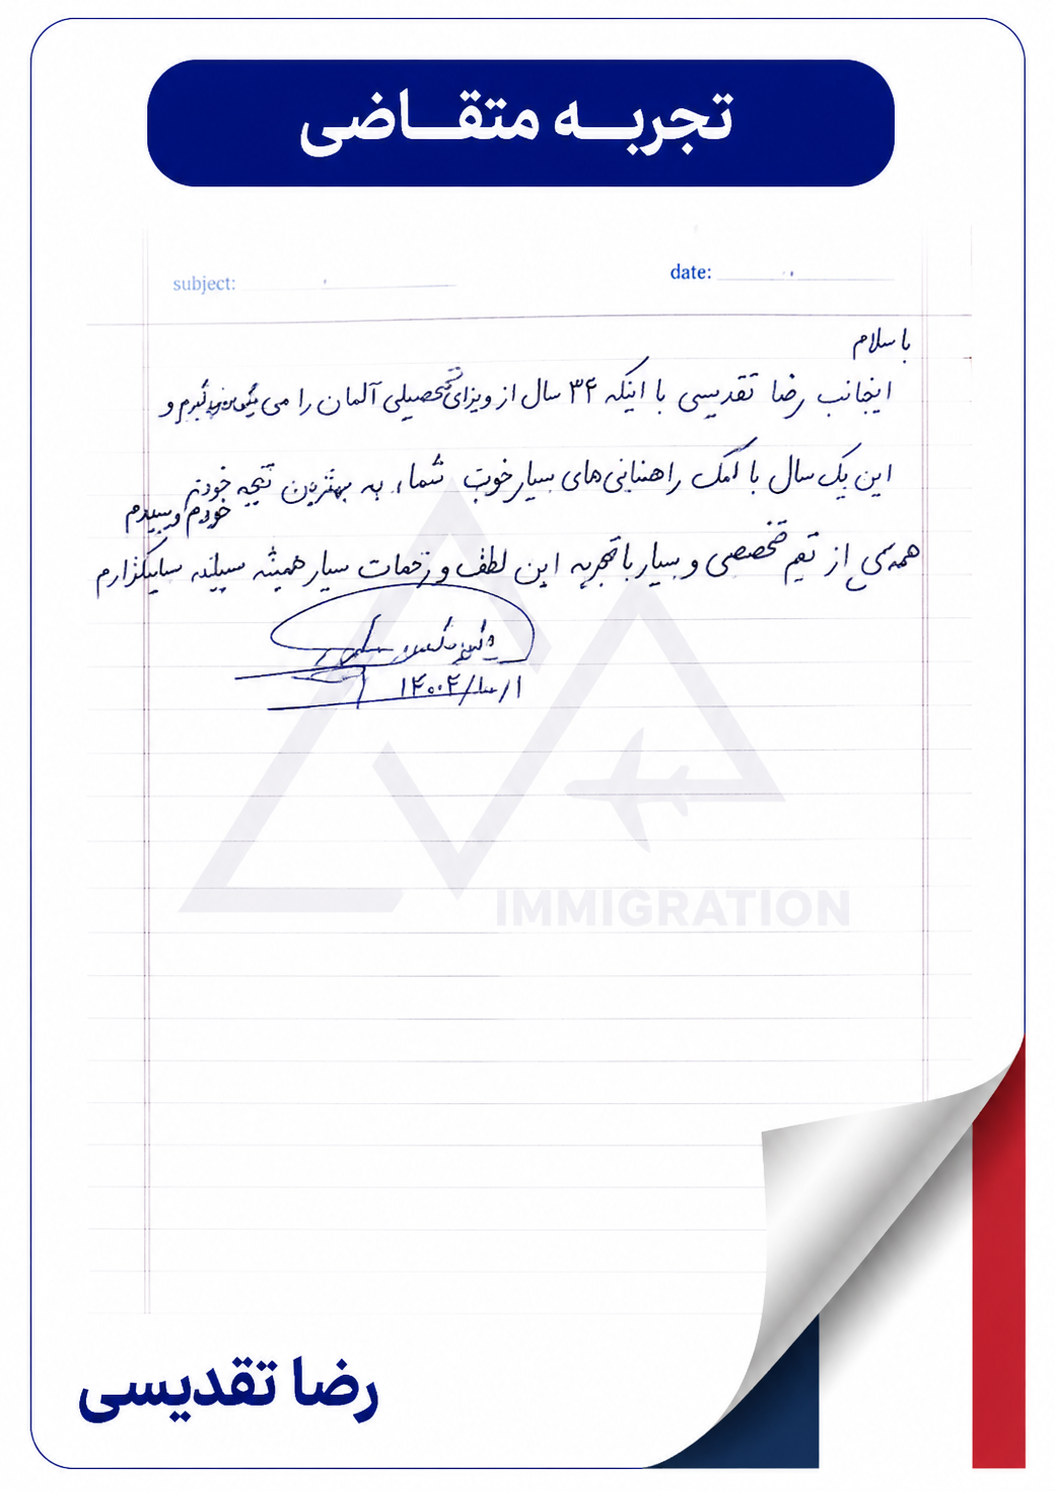 تجربه متقاضی
date:
subject:
با سلام
اینجانب رضا تقدیسی با اینکه ۳۴ سال از ویزای تحصیلی آلمان را می گیرم و
این یک سال با کمک راهنمایی‌های بسیار خوب شما، به بهترین نتیجه خودم
خودم رسیدم
همه‌ی از تیم تخصصی و بسیار با تجربه این لطف و زحمات بسیار همیشه سپاسگزارم
۱۴۰۲/۱۰/۱
IMMIGRATION
رضا تقدیسی